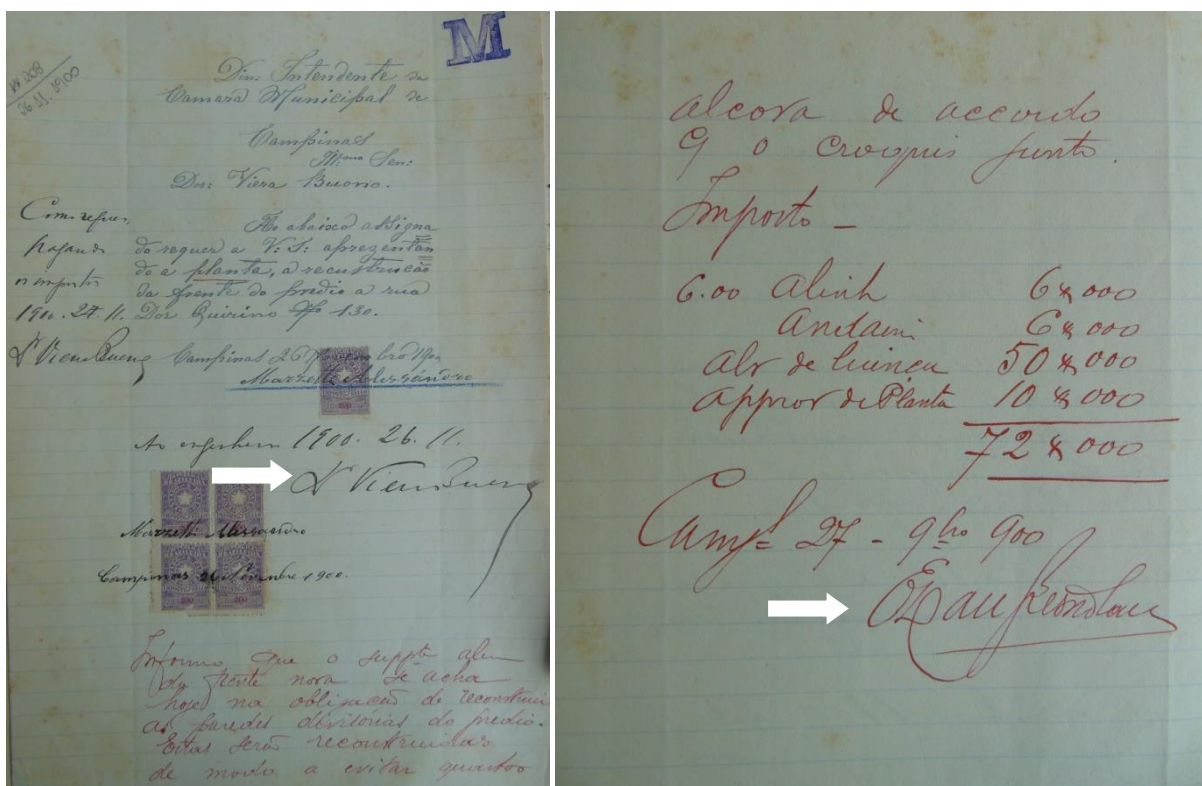 M
Nº 208
26.11.1900
Dim: Intendente da
Camara Municipal de
Campinas
Illmo Sen:
Dor: Viera Bueno.
Como requer,
pagando
os impostos
1900. 27. 11.
Dr Vieira Bueno
Ao abaixo assigna
do requer a V: S: aprezentan
do a planta, a recustrucção
da frente do predio a rua
Dor Quirino Nº 130.
Campinas 26 Novembro 1900
Marzetti Alessandro
200
Ao engenheiro 1900. 26. 11.
Dr Vieira Bueno
Marzetti Alessandro
Campinas 26 Novembre 1900.
200 200
Informo que o suppte alem
da frente nova se acha
hoje na obligação de reconstruir
as paredes divisorias do predio.
Estas serão reconstruidas
de modo a evitar quartos
alcova de accordo
c/ o croquis junto.
Imposto -
6.00 Alinh 6$000
Andaim 6$000
alv de licença 50$000
approv de Planta 10$000
72$000
Camps 27 - 9bro 900